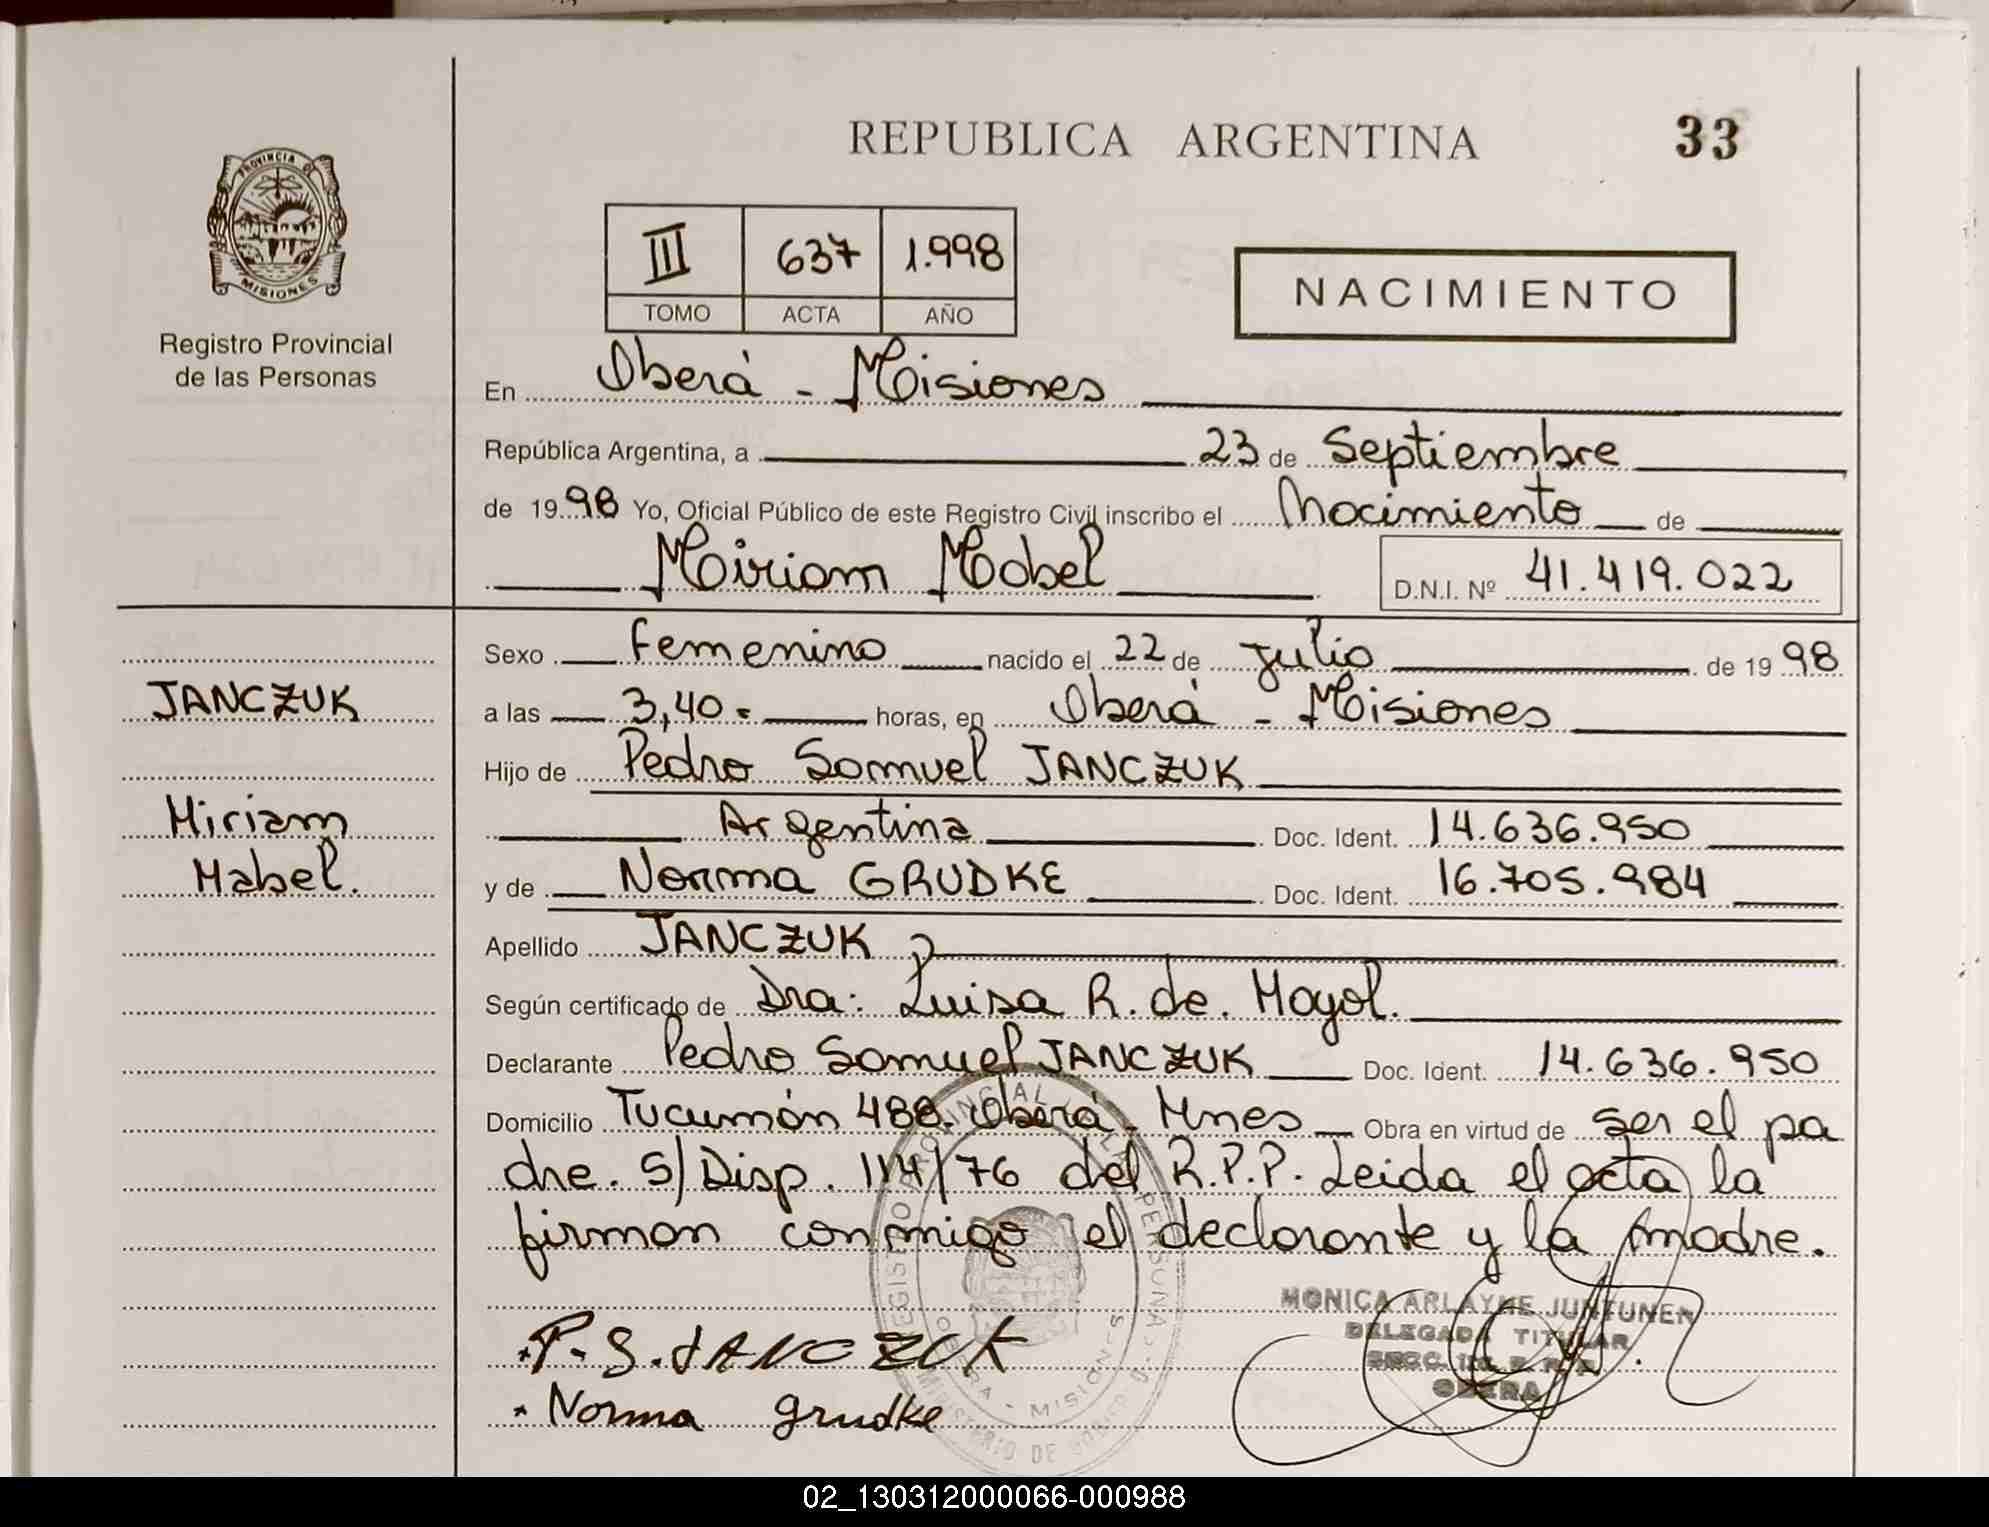 REPUBLICA ARGENTINA 33
PROVINCIA DE
MISIONES
Registro Provincial
de las Personas
III 637 1.998
TOMO ACTA AÑO
NACIMIENTO
En Oberá - Misiones
República Argentina, a 23 de Septiembre
de 1998 Yo, Oficial Público de este Registro Civil inscribo el Nacimiento de
Miriam Mabel D.N.I. Nº 41.419.022
Sexo Femenino nacido el 22 de julio de 1998
JANCZUK
a las 3,40.- horas, en Oberá - Misiones
Hijo de Pedro Samuel JANCZUK
Miriam
Argentina Doc. Ident. 14.636.950
Mabel.
y de Norma GRUDKE Doc. Ident. 16.705.984
Apellido JANCZUK
Según certificado de Dra: Luisa R. de. Moyol.
Declarante Pedro Samuel JANCZUK Doc. Ident. 14.636.950
Domicilio Tucumán 488. Oberá - Mnes Obra en virtud de ser el pa
dre. S/Disp. 114/76 del R.P.P. Leida el acta la
firman conmigo el declarante y la madre.
MONICA ARLAYNE JUNTUNEN
DELEGADA TITULAR
OBERA
P. S. JANCZUK
Norma grudke
REGISTRO PROVINCIAL DE LAS PERSONAS
OBERA - MISIONES
MINISTERIO DE
02_130312000066-000988